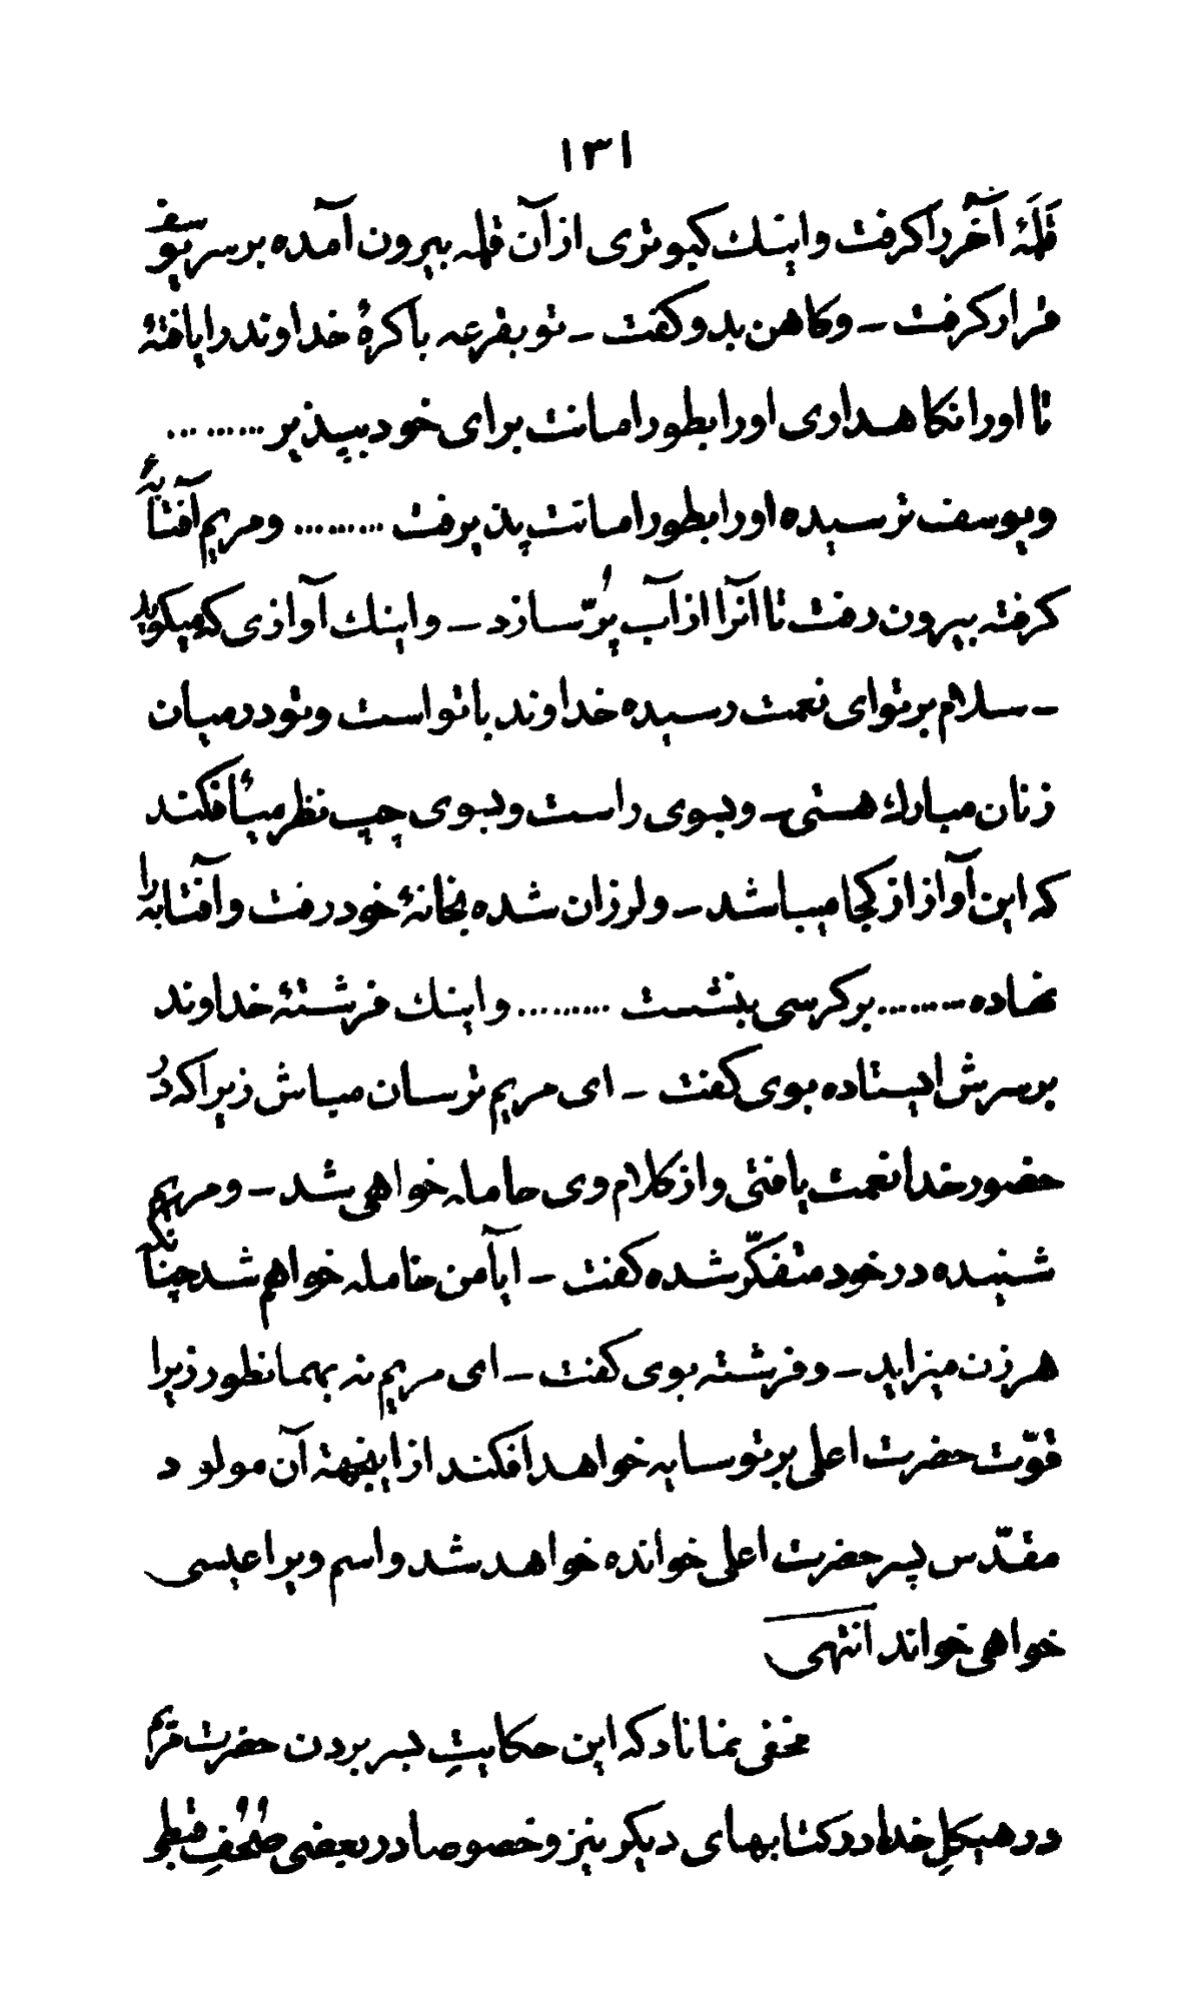 ۱۳۱
قلمهٔ آخر را گرفت و اینك کبوتری از آن قلمه بیرون آمده بر سر یوسف
قرار گرفت – و کاهن بدو گفت – تو بقرعه باکرهٔ خداوند را یافتهٔ
تا او را نگاهداری او را بطور امانت برای خود بپذیر .........
و یوسف ترسیده او را بطور امانت پذیرفت ......... و مریم آفتابهٔ
گرفته بیرون رفت تا آنرا از آب پُرّ سازد – و اینك آوازی که میگوید
– سلام بر تو ای نعمت رسیده خداوند با تو است و تو در میان
زنان مبارك هستی – و بسوی راست و بسوی چپ نظر میأفکند
که این آواز از کجا میباشد – و لرزان شده بخانهٔ خود رفت و آفتابه را
نهاده ......... بر کرسی بنشست ......... و اینك فرشتهٔ خداوند
بر سرش ایستاده بوی گفت – ای مریم ترسان مباش زیرا که در
حضور خدا نعمت یافتی و از کلام وی حامله خواهی شد – و مریم
شنیده در خود متفکّر شده گفت – ایا من حامله خواهم شد چنانکه
هر زن میزاید – و فرشته بوی گفت – ای مریم نه بهمانطور زیرا
قوّت حضرت اعلی بر تو سایه خواهد افکند از اینجهة آن مولود
مقدّس پسر حضرت اعلی خوانده خواهد شد و اسم ویرا عیسی
خواهی خواند انتهی
مخفی نماناد که این حکایتِ بسر بردن حضرت مریم
در هیکلِ خدا در کتابهای دیگر نیز و خصوصا در بعضی صُحُفِ قبطی